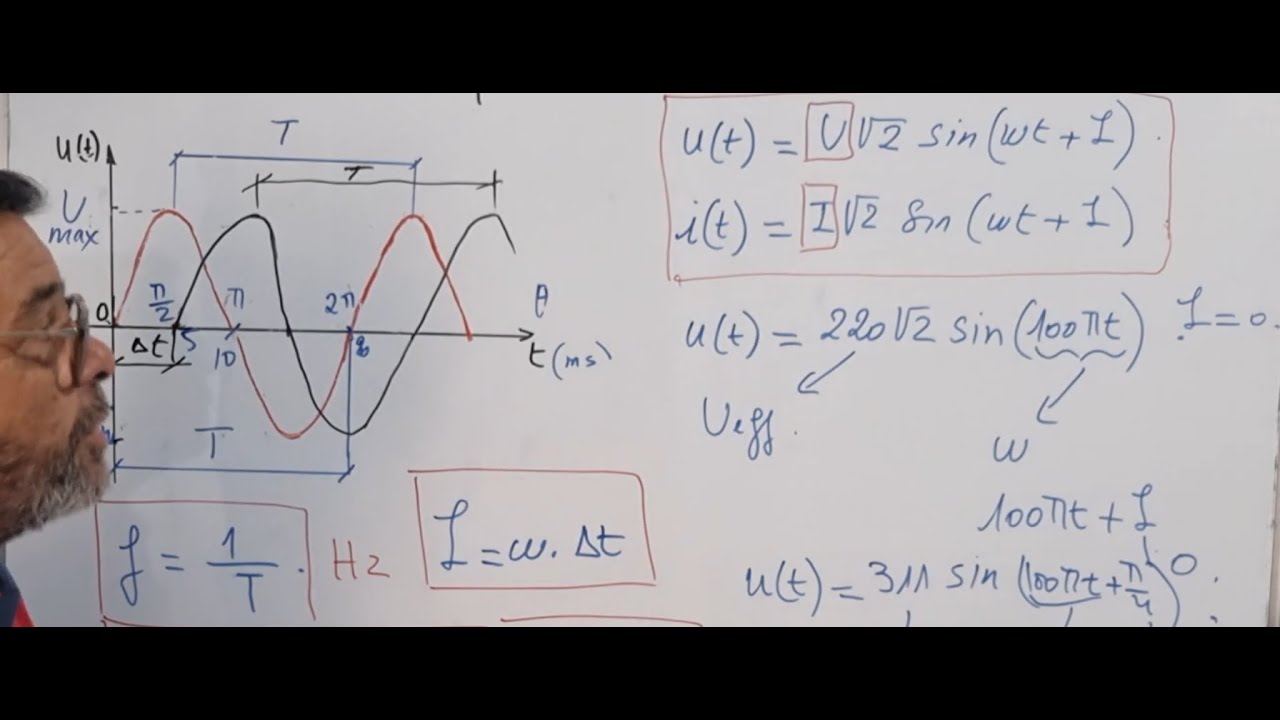 u(t)
T
T
U
max
0
π/2
π
2π
θ
Δt
5
10
t (ms)
T
f = 1/T . Hz
φ = ω. Δt
u(t) = U√2 sin(ωt + φ).
i(t) = I√2 sin(ωt + φ)
u(t) = 220√2 sin(100πt) φ = 0.
Ueff.
ω
100πt + φ
0.
u(t) = 311 sin(100πt + π/4)